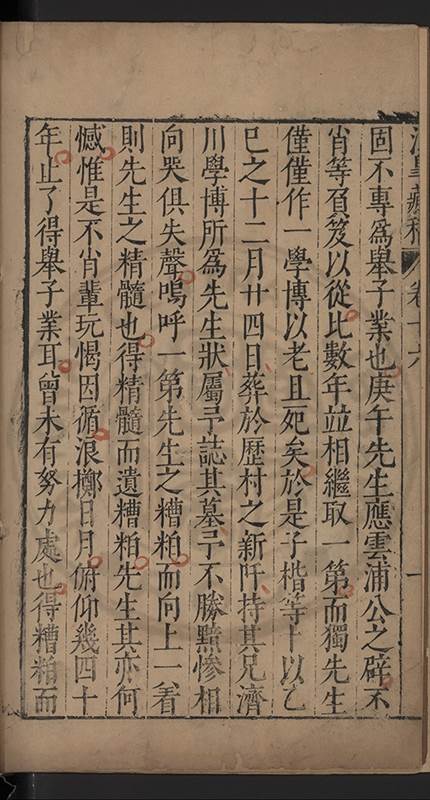 涇臯藏稿 卷十六 一
固不專為舉子業也庚午先生應雲浦公之辟不
肖等負笈以從比數年竝相繼取一第而獨先生
僅僅作一學博以老且死矣於是子楷等卜以乙
巳之十二月廿四日葬於歴村之新阡持其兄濟
川學博所為先生狀屬予誌其墓予不勝黯慘相
向哭俱失聲嗚呼一第先生之糟粕而向上一着
則先生之精髓也得精髓而遺糟粕先生其亦何
憾惟是不肖輩玩愒因循浪擲日月俯仰幾四十
年止了得舉子業耳曾未有努力處也得糟粕而